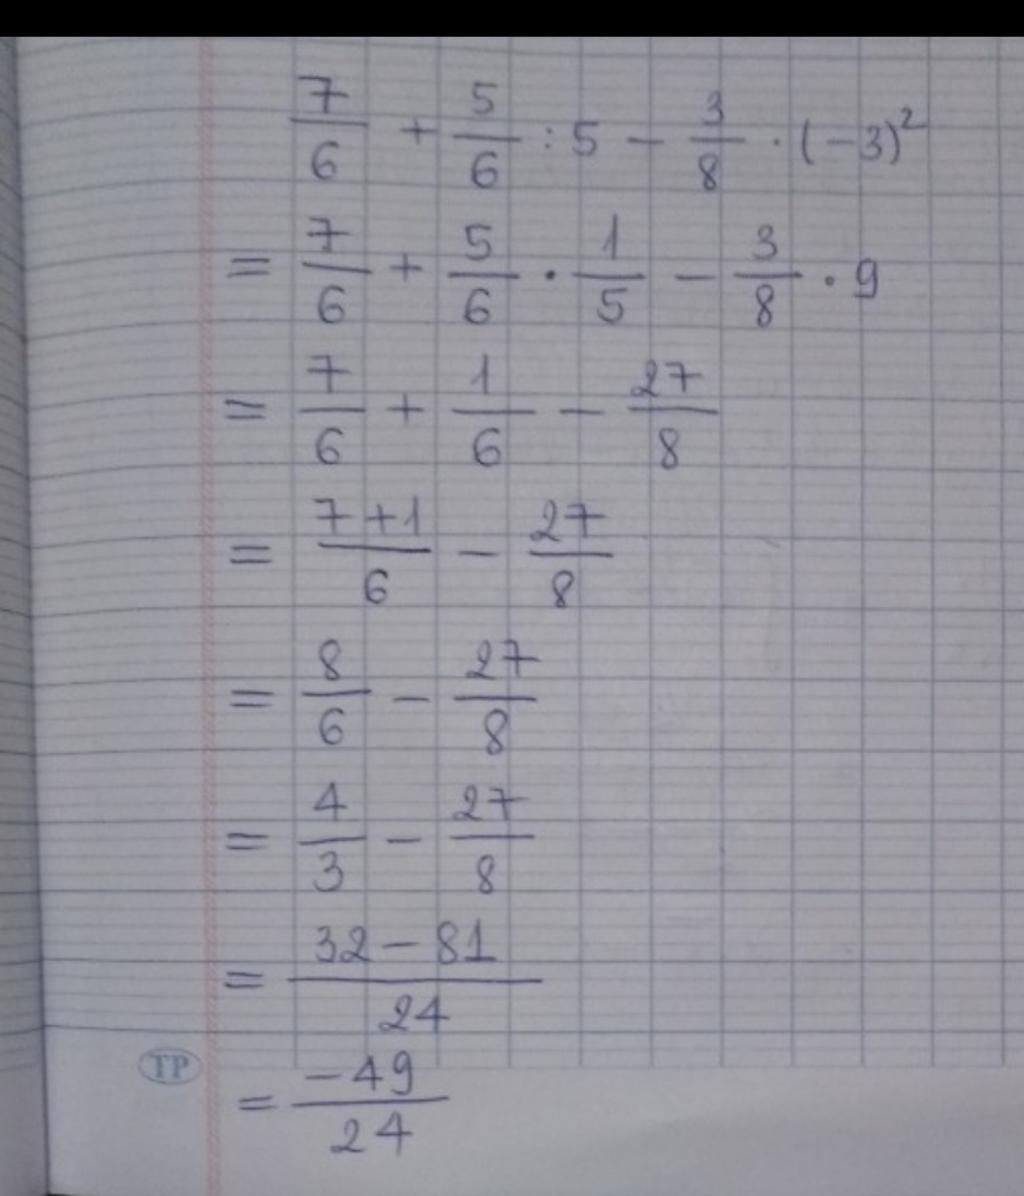 7/6 + 5/6 : 5 − 3/8 · (−3)²
= 7/6 + 5/6 · 1/5 − 3/8 · 9
= 7/6 + 1/6 − 27/8
= (7+1)/6 − 27/8
= 8/6 − 27/8
= 4/3 − 27/8
= (32 − 81)/24
TP
= −49/24